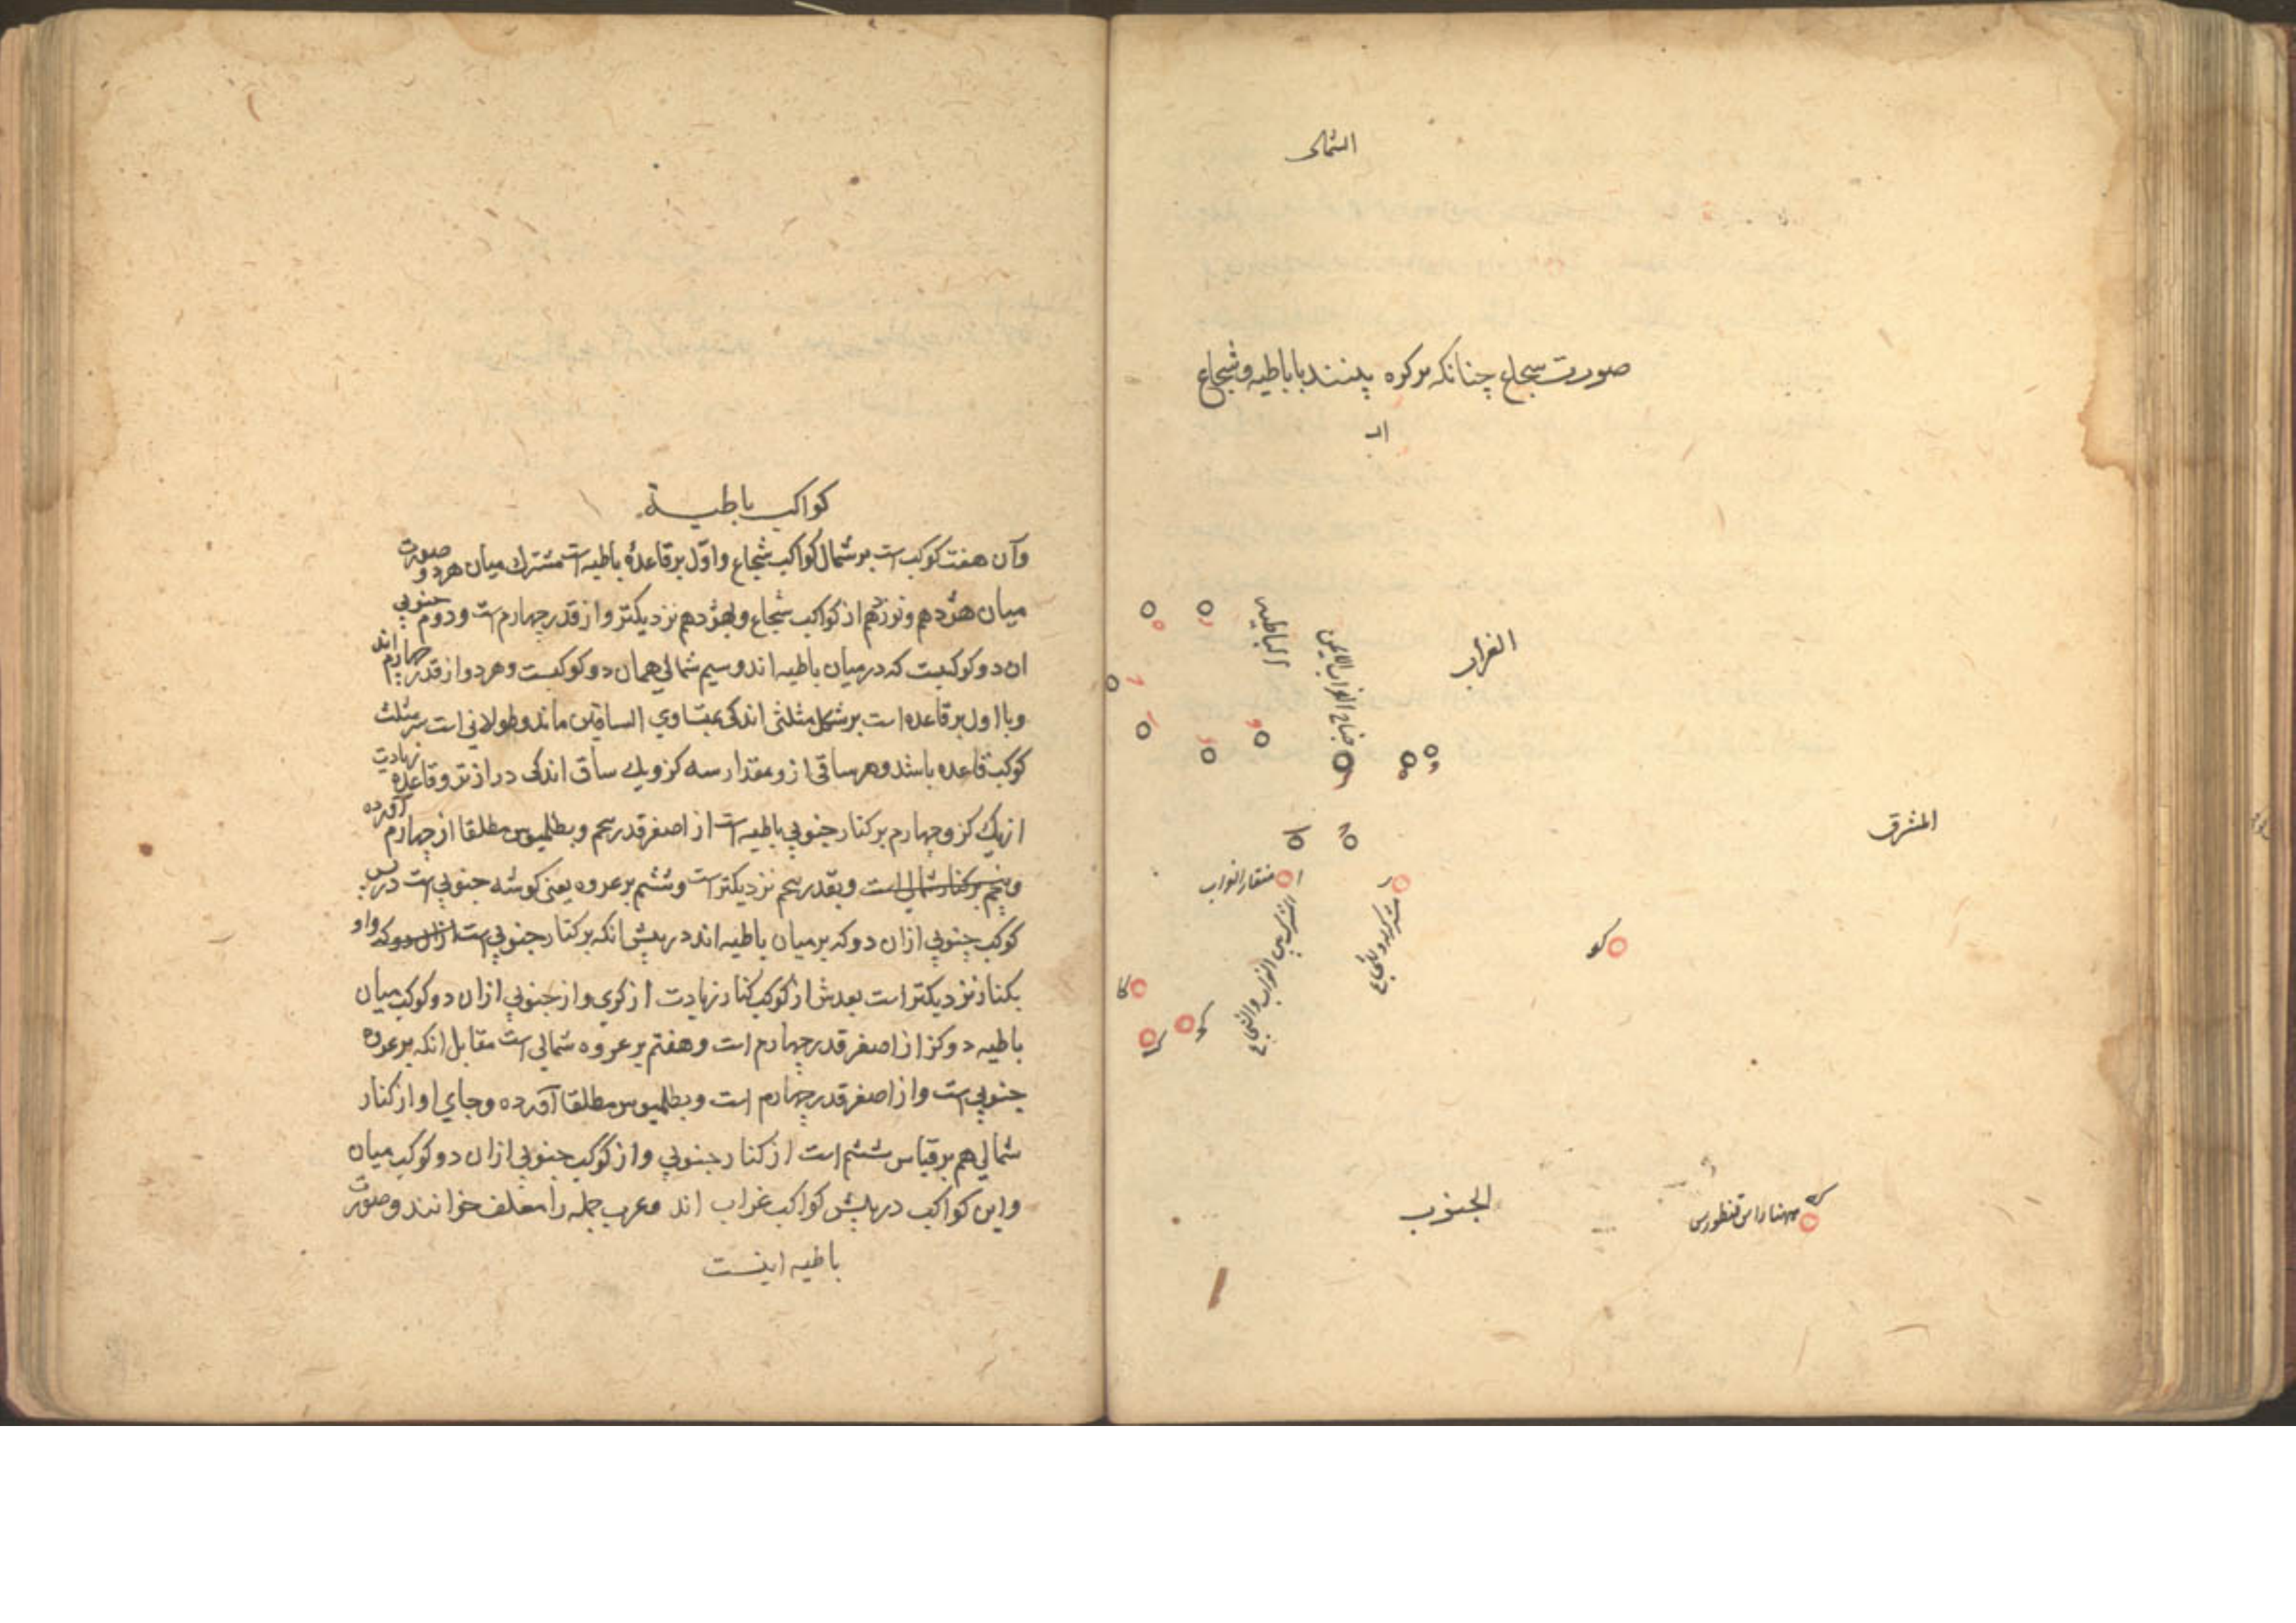 الشمال
صورت شجاع چنانكه بركره بينند با باطيه وشجاع
الباطيه
جناح الغراب الايمن
الغراب
المشرق
منقار الغراب
المشترك بين الغراب والشجاع
كو
كا
كو
الجنوب
كواكب باطيــة
وآن هفت كوكب است بر شمال كواكب شجاع واول بر قاعدهٔ باطيه است مشترك ميان هردو صورت
ميان هژدهم ونوزدهم از كواكب شجاع وبهژدهم نزديكتر واز قدر چهارم است ودوم جنوبي
ان دو كوكبست كه درميان باطيه اند وسيم شمالي همان دو كوكبست وهردو از قدر چهارم اند
وبا اول بر قاعده است بر شكل مثلثي اندكي بمتساوي الساقين ماند وطولاني است سر مثلث
كوكب قاعده باشد وهر ساقي ازو مقدار سه كز ويك ساق اندكي دراز تر وقاعده زيادت
از يك كز وچهارم بر كنار جنوبي باطيه است از اصغر قدر پنجم وبطلميوس مطلقا از چهارم آورده
وپنجم بر كنار شمالي است وبقدر پنجم نزديكتر است وششم بر عروه يعني كوشه جنوبي است در پس
كوكب جنوبي ازان دو كه بر ميان باطيه اند در پيش انكه بر كنار جنوبي است ازان دو كه واو
بكنار نزديكتر است بعدش از كوكب كنار زيادت از كزي واز جنوبي ازان دو كوكب ميان
باطيه دو كز از اصغر قدر چهارم است وهفتم بر عروه شمالي است مقابل انكه بر عروه
جنوبي است واز اصغر قدر چهارم است وبطلميوس مطلقا آورده وجاي او از كنار
شمالي هم بر قياس ششم است از كنار جنوبي واز كوكب جنوبي ازان دو كوكب ميان
واين كواكب در پيش كواكب غراب اند وعرب جمله را معلف خوانند وصورت
باطيه اينست